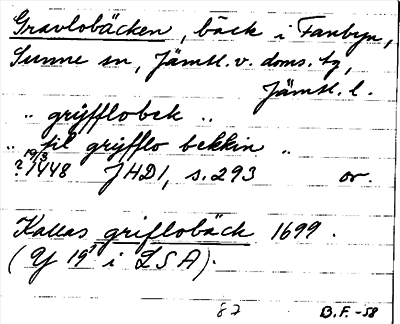 Gravlobäcken, bäck i Fanbyn,
Sunne sn, Jämtl. v. doms. tg,
Jämtl. l.
" grijfflobek "
" til grijfflo bekkin "
? 19/3 1448 JHD1, s. 293 or.
Kallas griflobäck 1699.
(Y 19¹ i LSA).
87 B.F. -58